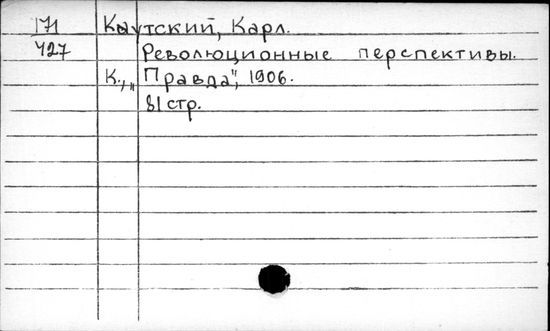 171 Каутский, Карл.
427 Революционные перспективы.
К., „Правда", 1906.
81 стр.